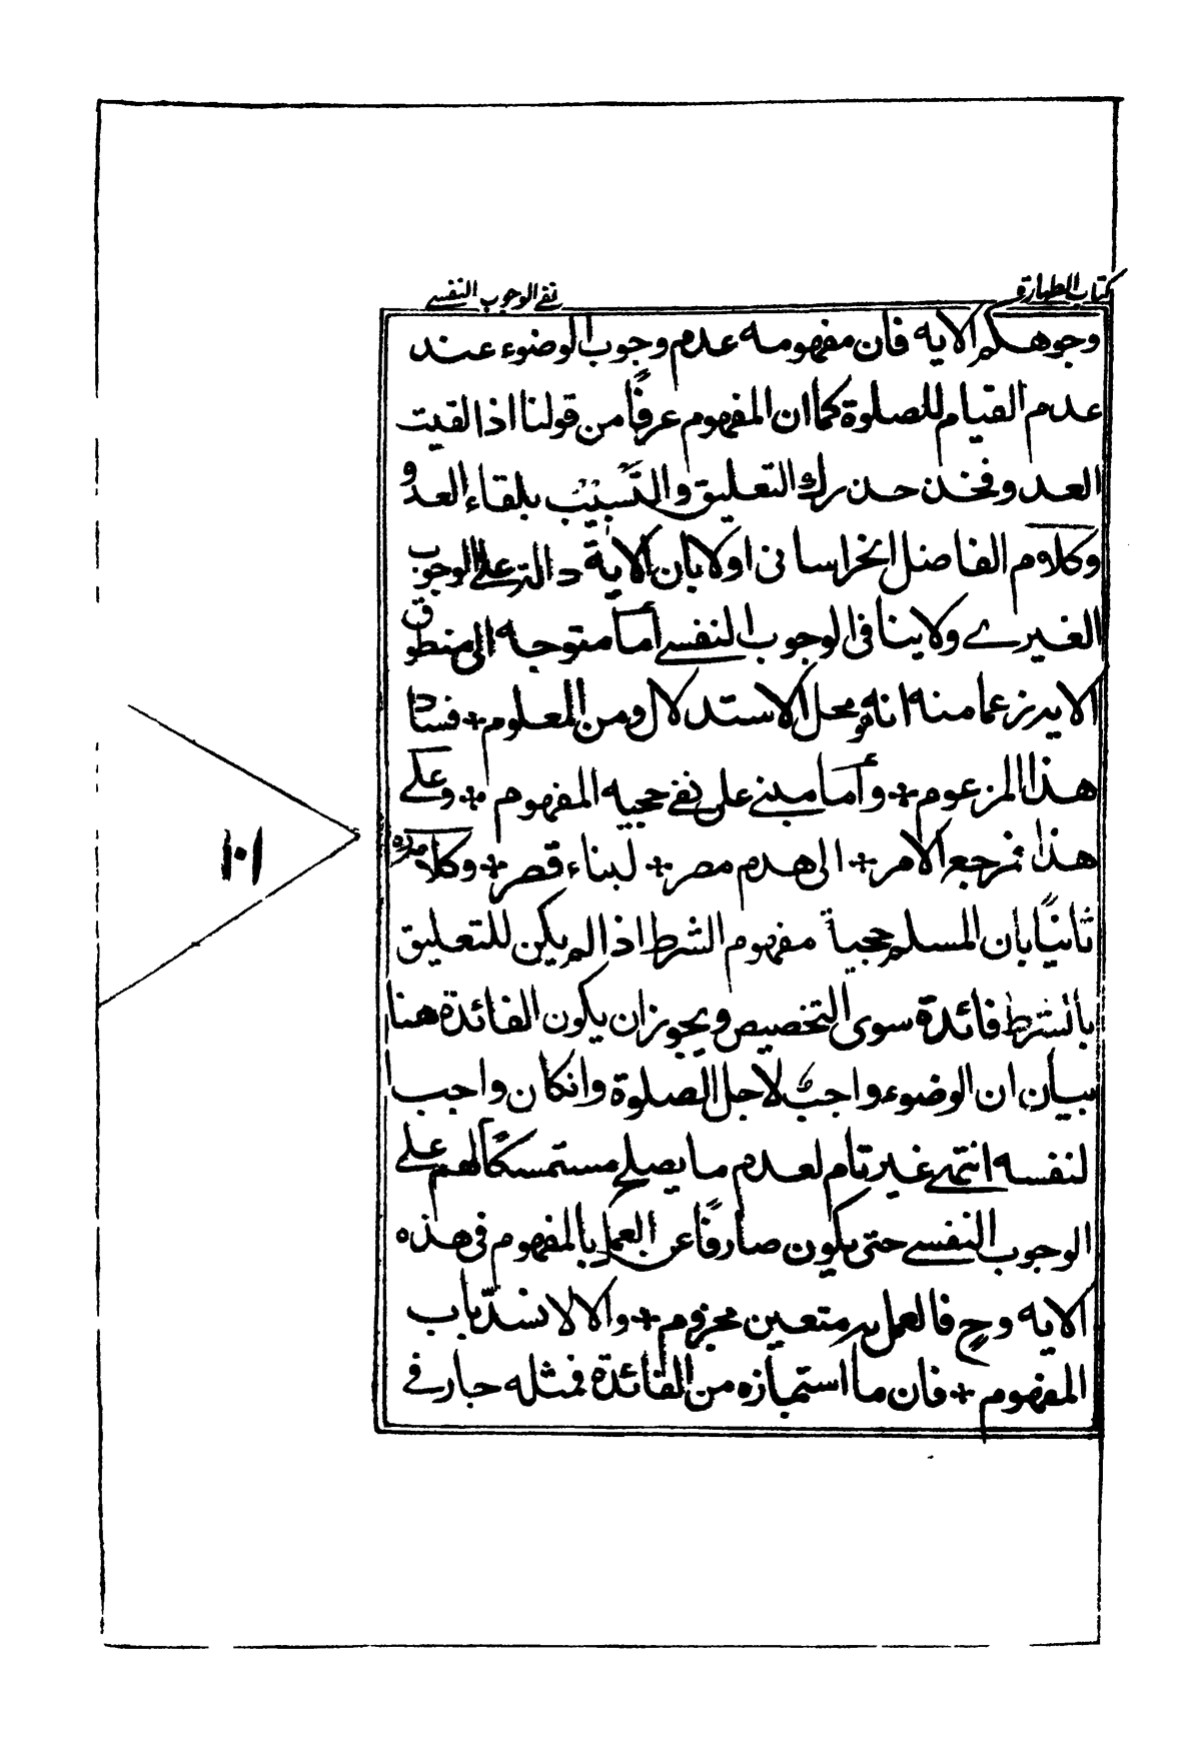 كتاب الطهارة
نفي الوجوب النفسي
وجوهكم الايه فان مفهومه عدم وجوب الوضوء عند
عدم القيام للصلوة كما ان المفهوم عرفاً من قولنا اذا لقيت
العدو فخذ حذرك التعليق والتسبيب بلقاء العدو
وكلام الفاضل الخراساني اولا بان الاية دالة على الوجوب
الغيري ولا ينافي الوجوب النفسي أما متوجه الى منطوق
الايه زعما منه انه محل الاستدلال ومن المعلوم + فساد
هذا المزعوم + وأما مبني على نفي حجيه المفهوم + وعلى
هذا فمرجع الامر + الى هدم مصر + لبناء قصر + وكلامه
ثانيًا بان المسلم حجية مفهوم الشرط اذا لم يكن للتعليق
بالشرط فائدة سوى التخصيص ويجوز ان يكون الفائدة هنا
بيان ان الوضوء واجب لاجل الصلوة وانكان واجب
لنفسه انتهى غير تام لعدم ما يصلح مستمسكًا لهم على
الوجوب النفسي حتى يكون صارفًا عن العمل بالمفهوم في هذه
الايه وح فالعمل به متعين مجزوم + والا لانسدّ باب
المفهوم + فان ما من الفائدة فمثله جار في
١٠١